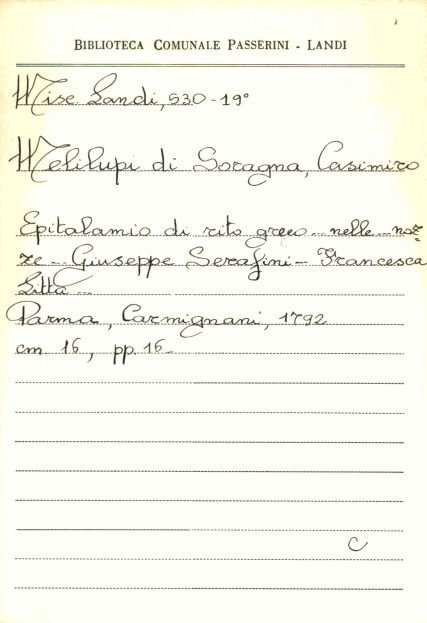 BIBLIOTECA COMUNALE PASSERINI - LANDI
Misc Landi, 530-19°
Melilupi di Soragna, Casimiro
Epitalamio di rito greco... nelle... noz-
ze... Giuseppe Serafini - Francesca
Litta...
Parma, Carmignani, 1792
cm. 16, pp. 16.
C